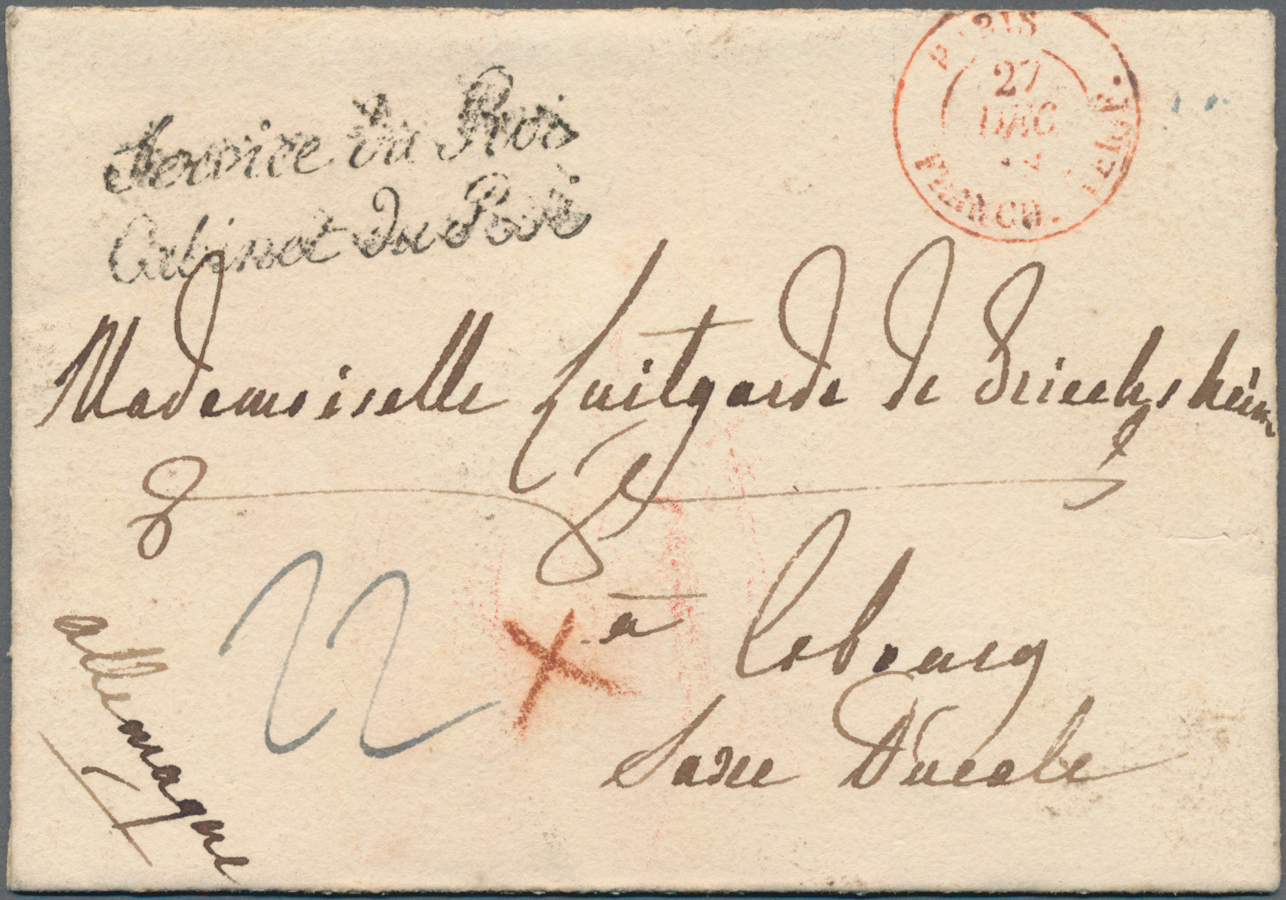 Service du Roi
Cabinet du Roi
PARIS
27
DEC
FRANCO.
Mademoiselle Luitgarde de
à Cobourg
Saxe Ducale
22
allemagne